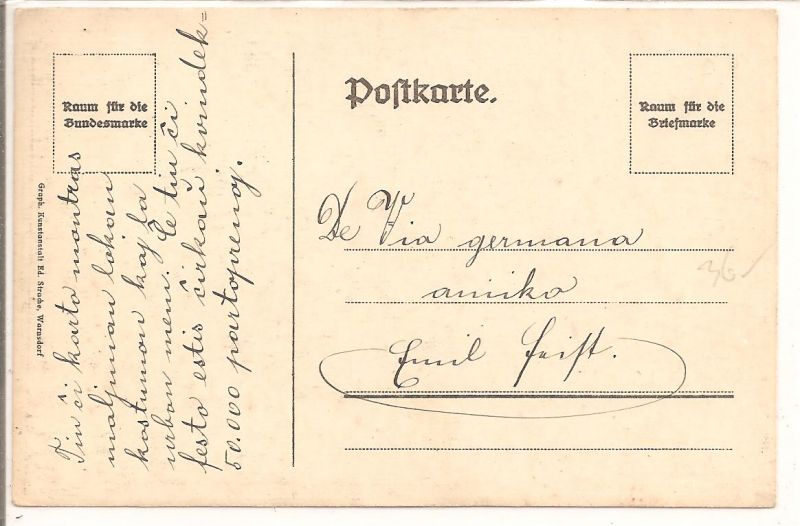 Raum für die
Bundesmarke
Postkarte.
Raum für die
Briefmarke
Tiu ĉi karto montras
maljunan lokan
kostumon kaj la
urban 
festo estis ĉirkaŭ kvindek=
50.000 partoprenoj.
De Via germana
amiko
Emil Feist.
36
Graph. Kunstanstalt Ed. Strache, Warnsdorf